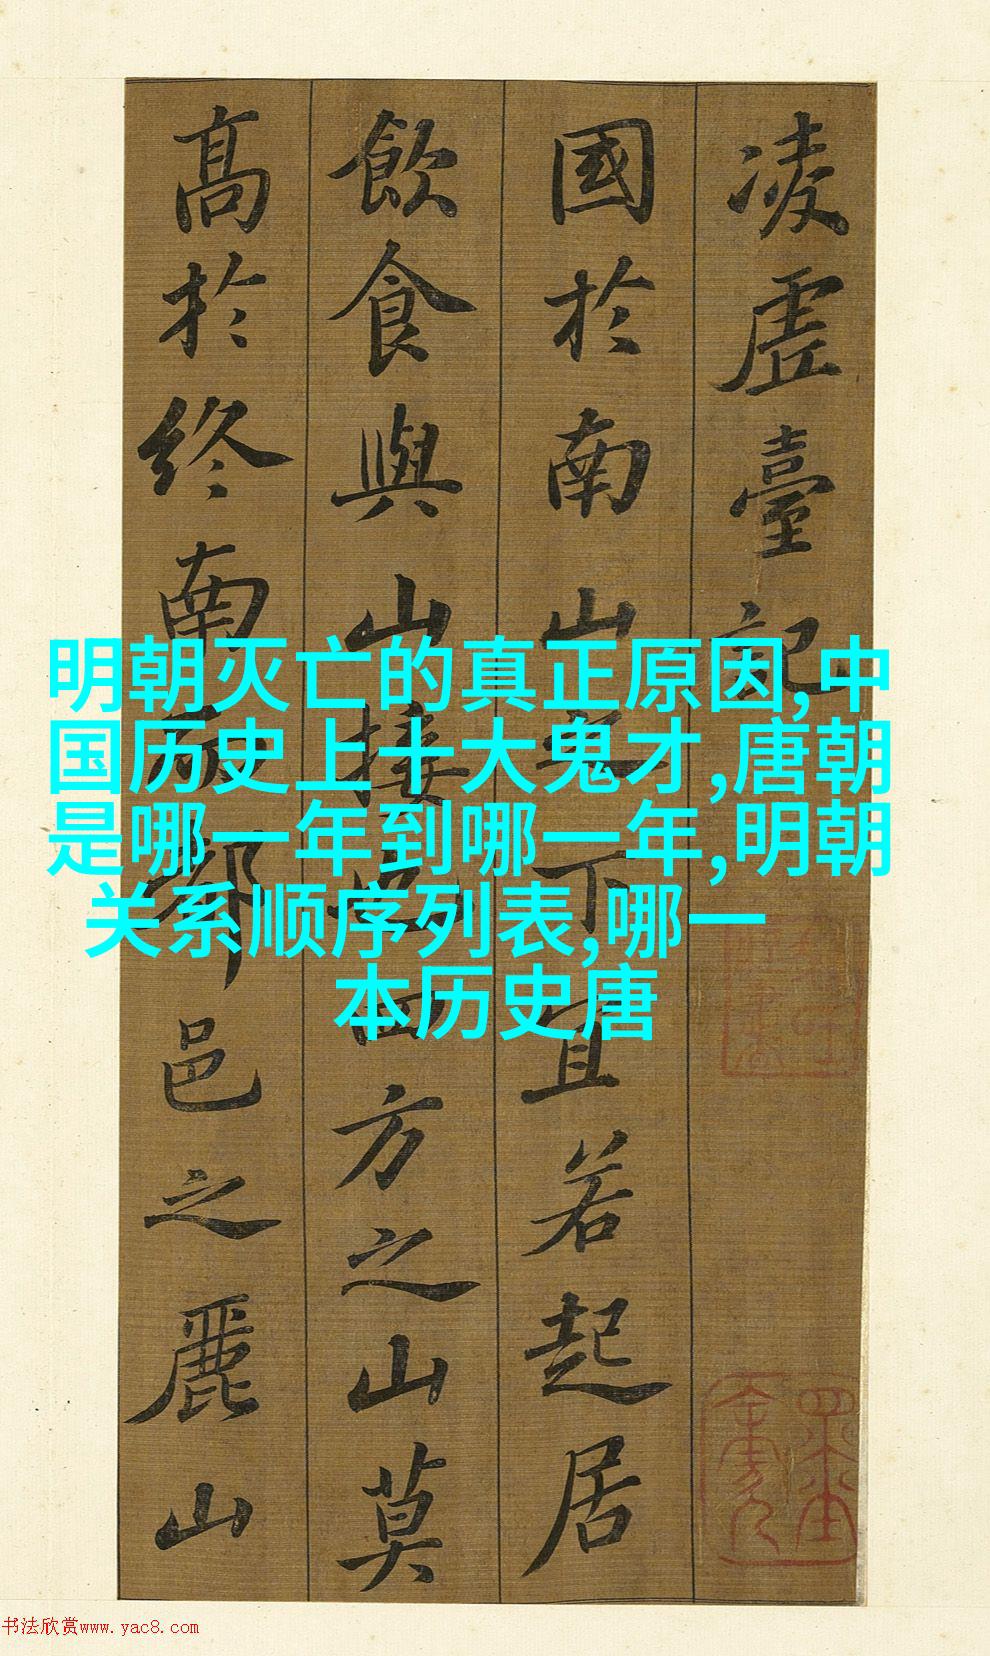 凌虛臺記
國於南山之下宜若起居
飲食與山接也四方之山莫
高於終南而都邑之麗山
明朝灭亡的真正原因,中
国历史上十大鬼才,唐朝
是哪一年到哪一年,明朝
关系顺序列表,哪一
本历史唐
书法欣赏www.yac8.com